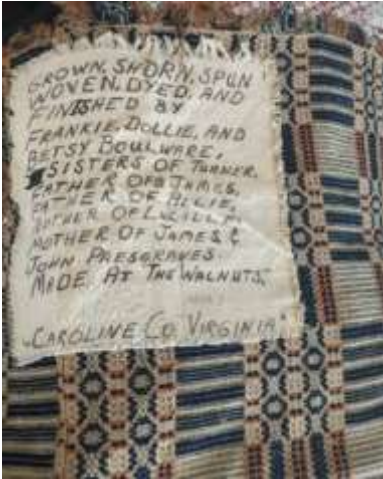 GROWN, SHORN, SPUN
WOVEN, DYED, AND
FINISHED BY
FRANKIE, DOLLIE, AND
BETSY BOULWARE,
SISTERS OF TURNER,
FATHER OF JAMES,
FATHER OF ALLIE,
MOTHER OF
MOTHER OF JAMES &
JOHN PRESGRAVES.
MADE AT THE WALNUTS,
CAROLINE CO. VIRGINIA